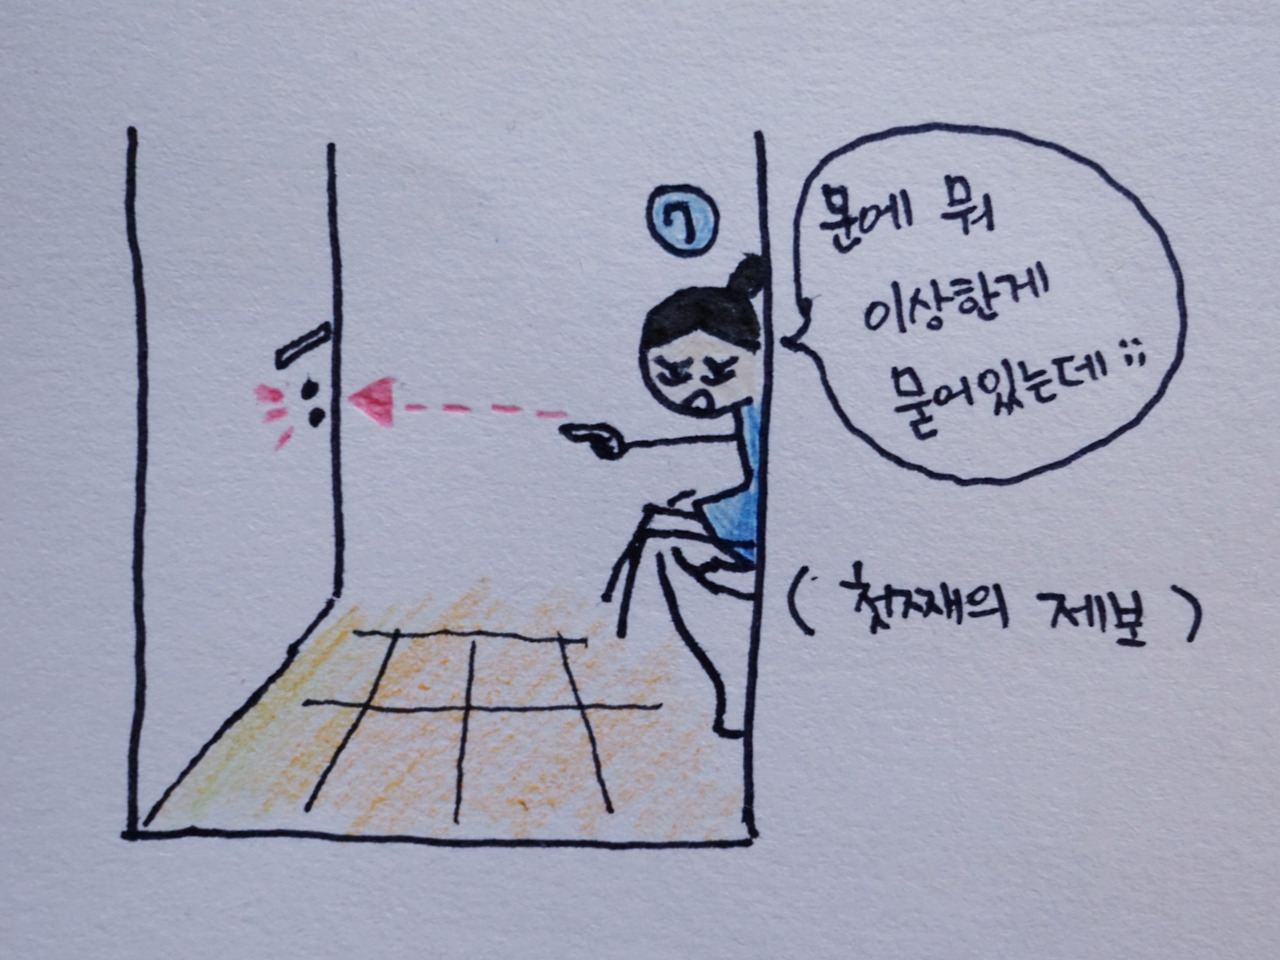 7
문에 뭐
이상한게
묻어있는데
(첫째의 제보)